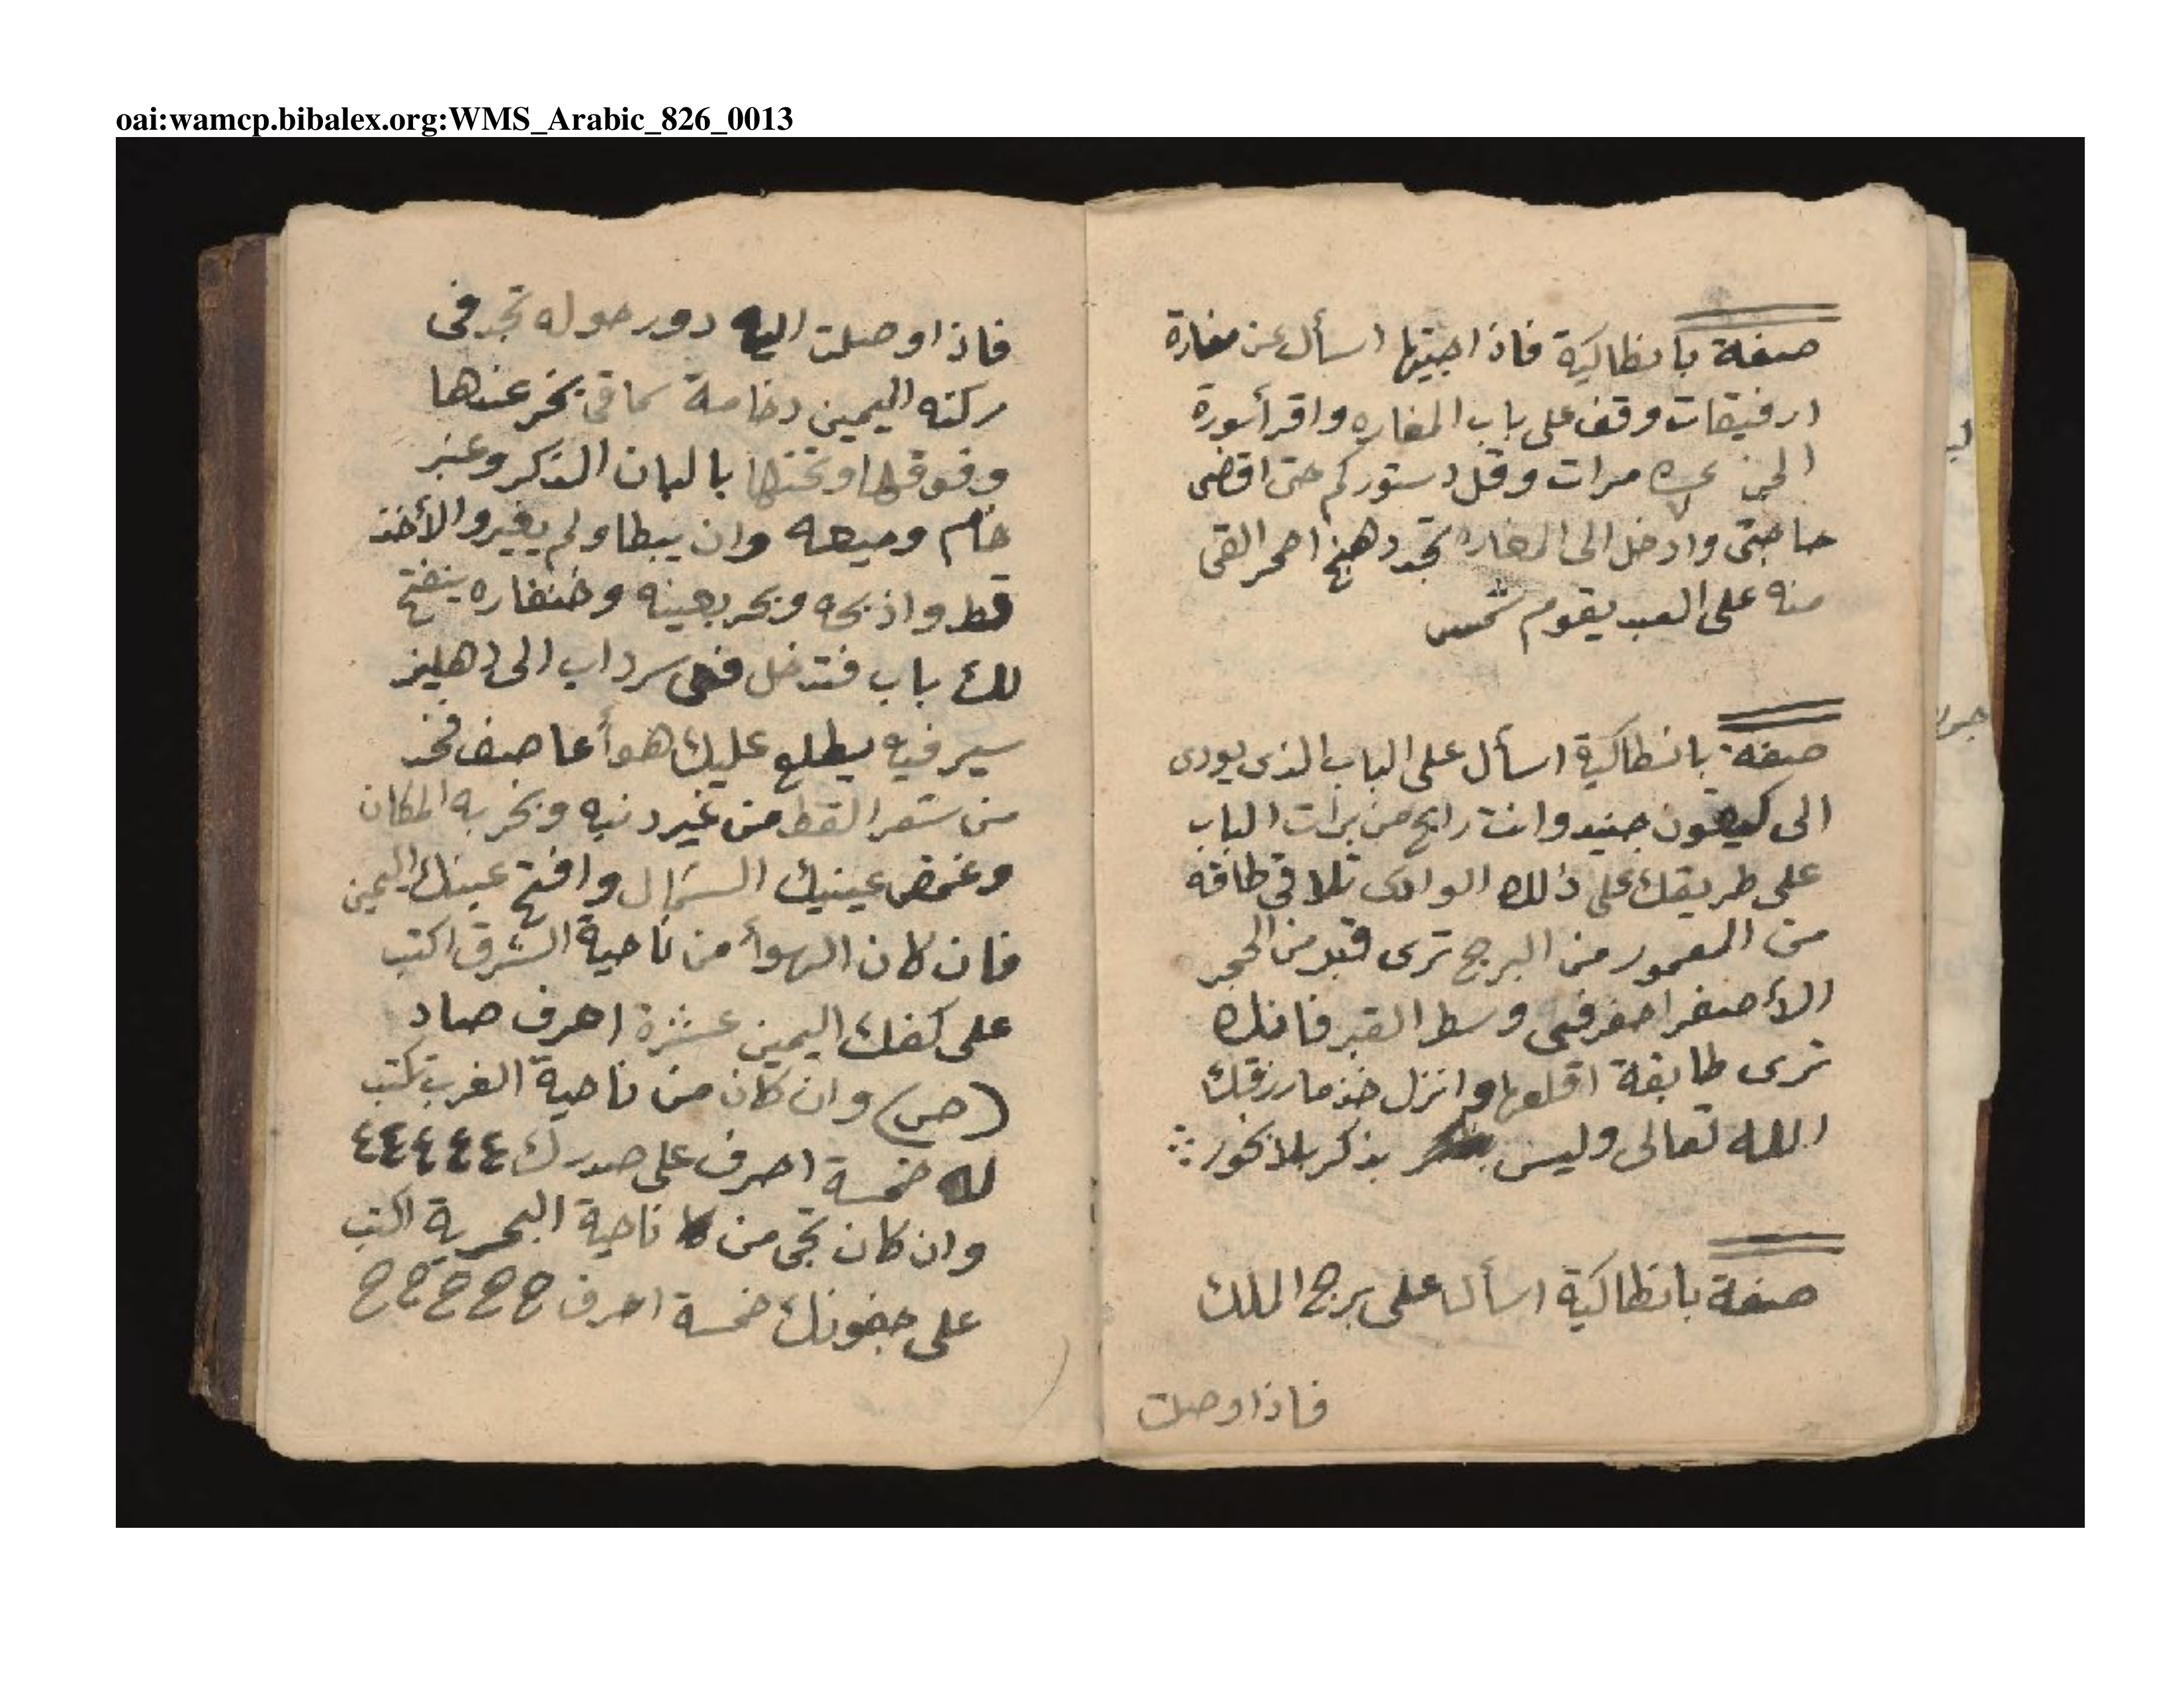 oai:wamcp.bibalex.org:WMS_Arabic_826_0013
صفة بانطاكية فاذا جيتها اسأل عن مغارة
ارفيقات وقف على باب المغاره واقرأ سورة
الجن مرات وقل دستوركم حتى اقضى
حاجتى وادخل الى المغاره تجد دهنج احمر القى
منه على العبد يقوم شمس
صفة بانطاكية اسأل على الباب الذى يودى
الى جنيد وانت رايح من برات الباب
على طريقك على ذلك الوادى تلاقى طاقه
من المعمور من البرج ترى قبر من الحجر
الأصفر احفر فى وسط القبر فانك
ترى طابقة اقلعها وانزل خذ ما رزقك
الله تعالى وليس بذكر بلا بخور
صفة بانطاكية اسأل على برج الملك
فاذا وصلت
فاذا وصلت اليه دور حوله تجد فى
ركنه اليمين رخامة سماقى بخر عندها
وفوقها وتحتها بالبان الذكر وعنبر
خام وميعه وان يبطا ولم يغيروا لأخذ
قط واذبحه وبخر بعينه وضنفاره ينفتح
لك باب فتدخل فى سرداب الى دهليز
سير فيه يطلع عليك هوأ عاصف فخد
من شعر القط من غير دنيه وبخر به المكان
وغمض عينيك الشمال وافتح عينك اليمين
فان كان الهوأ من ناحية الشرق اكتب
على كفك اليمين عشرة احرف صاد
(ص) وان كان من ناحية الغرب تكتب
له خمسة احرف على صدرك ٤ ٤ ٤ ٤ ٤
وان كان تجى من ناحية البحرية اكتب
على جفونك خمسة احرف ح ح ح ح ح